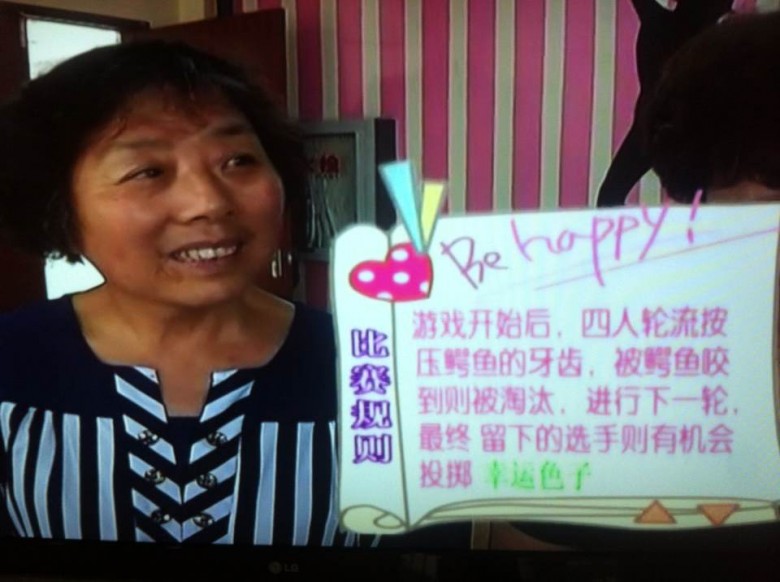 Be happy!
比赛规则
游戏开始后，四人轮流按
压鳄鱼的牙齿，被鳄鱼咬
到则被淘汰，进行下一轮，
最终 留下的选手则有机会
投掷 幸运色子
LG